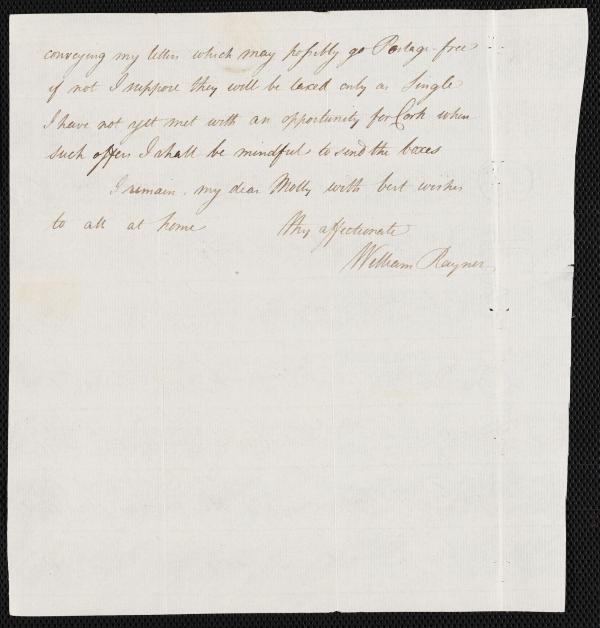 conveying my letters which may possibly go Postage free
if not I suppose they will be taxed only as Single
I have not yet met with an opportunity for Cork when
such offers I shall be mindful to send the boxes
I remain my dear Molly with best wishes
to all at home thy affectionate
William Rayner